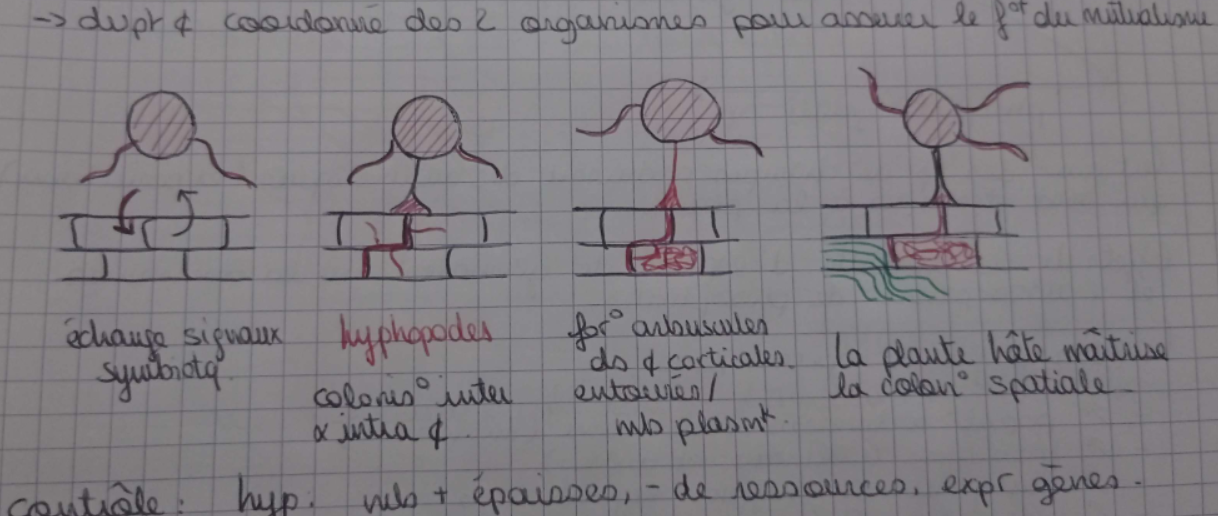 -> dvpt ¢ coordonné des 2 organismes pour assurer le f° du mutualisme
échange signaux
symbiotq
hyphopodes
colonis° inter
& intra ¢
for° arbuscules
ds ¢ corticales
entourées /
mb plasmk.
la plante hôte maîtrise
la colon° spatiale
contrôle : hyp : mb + épaisses, - de ressources, expr gènes.